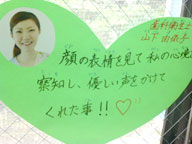 歯科衛生士
山下
顔の表情を見て私の心境
察知し、優しい声をかけて
くれた事!!♡